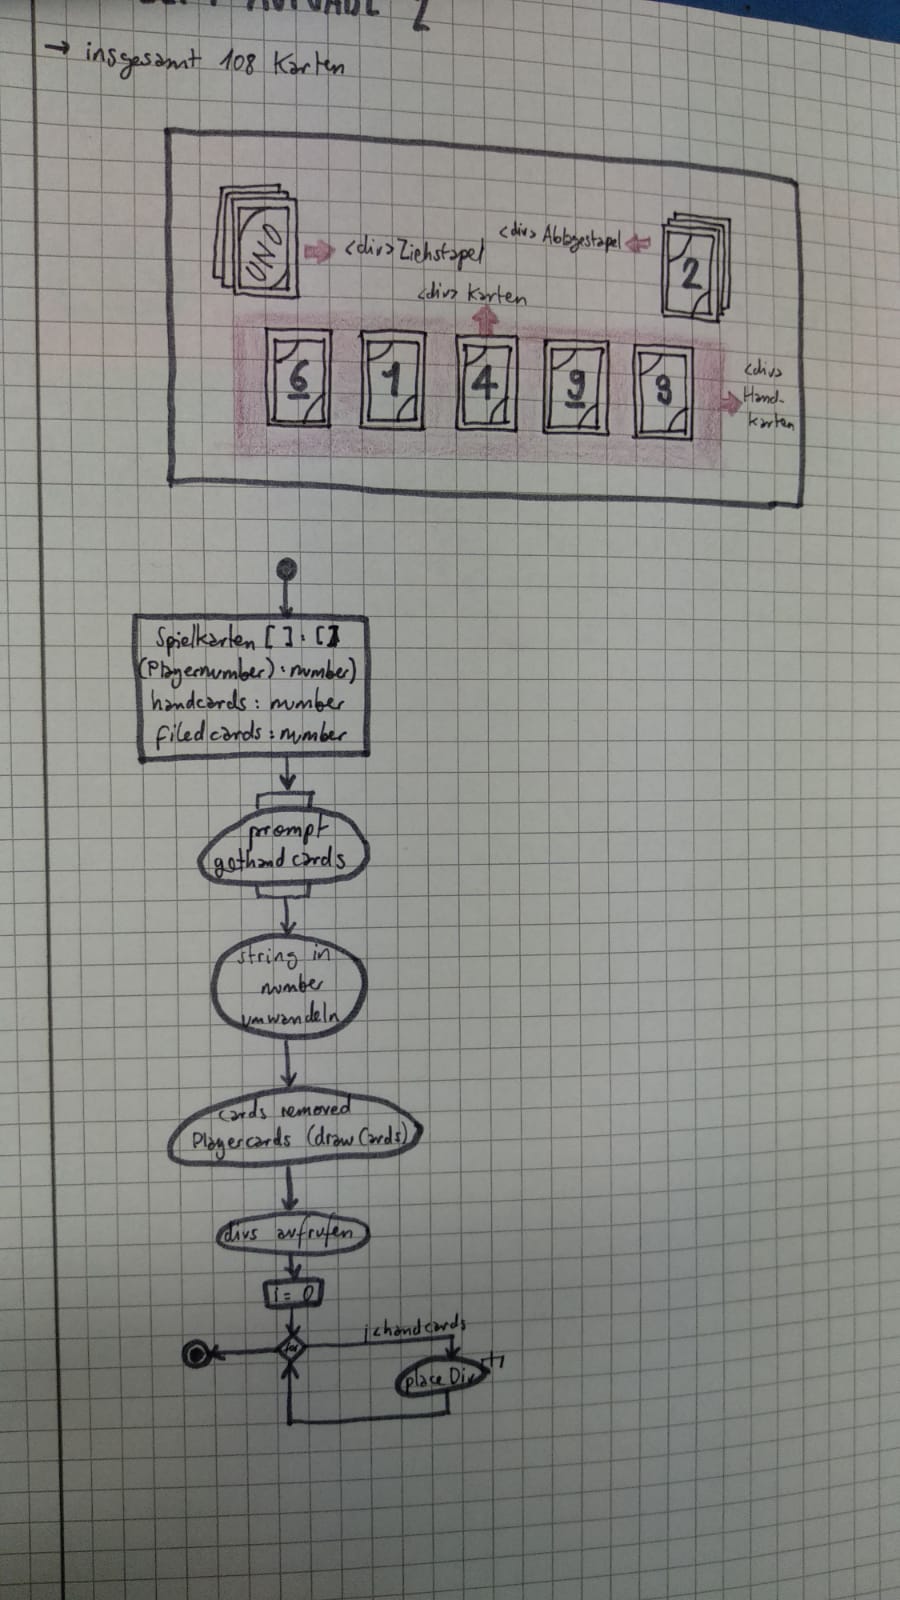 AUFGABE 2
→ insgesamt 108 Karten
UNO
<div> Ziehstapel
<div> Ablagestapel
2
<div> Karten
6 1 4 9 3
<div>
Hand-
karten
Spielkarten [ ] : [ ]
(Playernumber) : number)
handcards : number
filedcards : number
prompt
gethandcards
string in
number
umwandeln
cards removed
Playercards (draw Cards)
divs aufrufen
i = 0
for
i<handcards
place Div